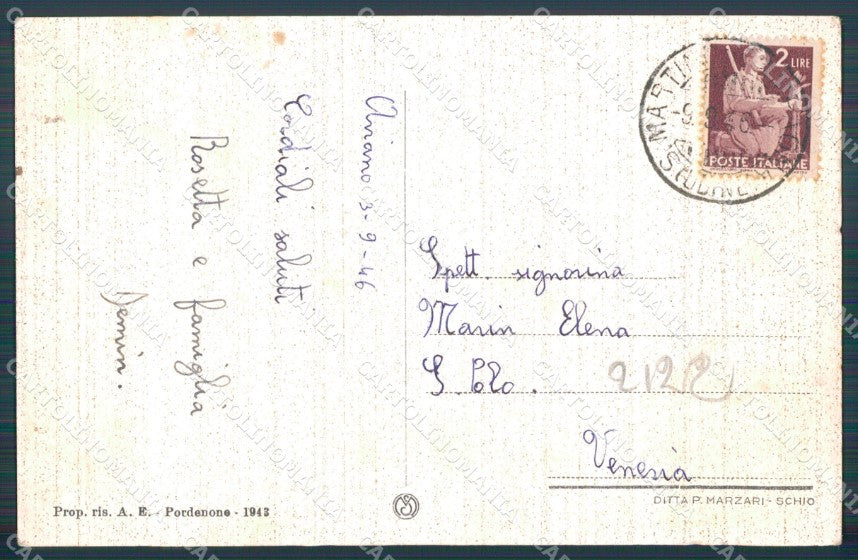 Aviano 3-9-46
Cordiali saluti
Rosetta e famiglia
Demin.
2 LIRE
POSTE ITALIANE
Spett. signorina
Marin Elena
S. Polo. 2128
Venezia
DITTA P. MARZARI - SCHIO
Prop. ris. A. E. - Pordenone - 1943
CARTOLINOMANIA